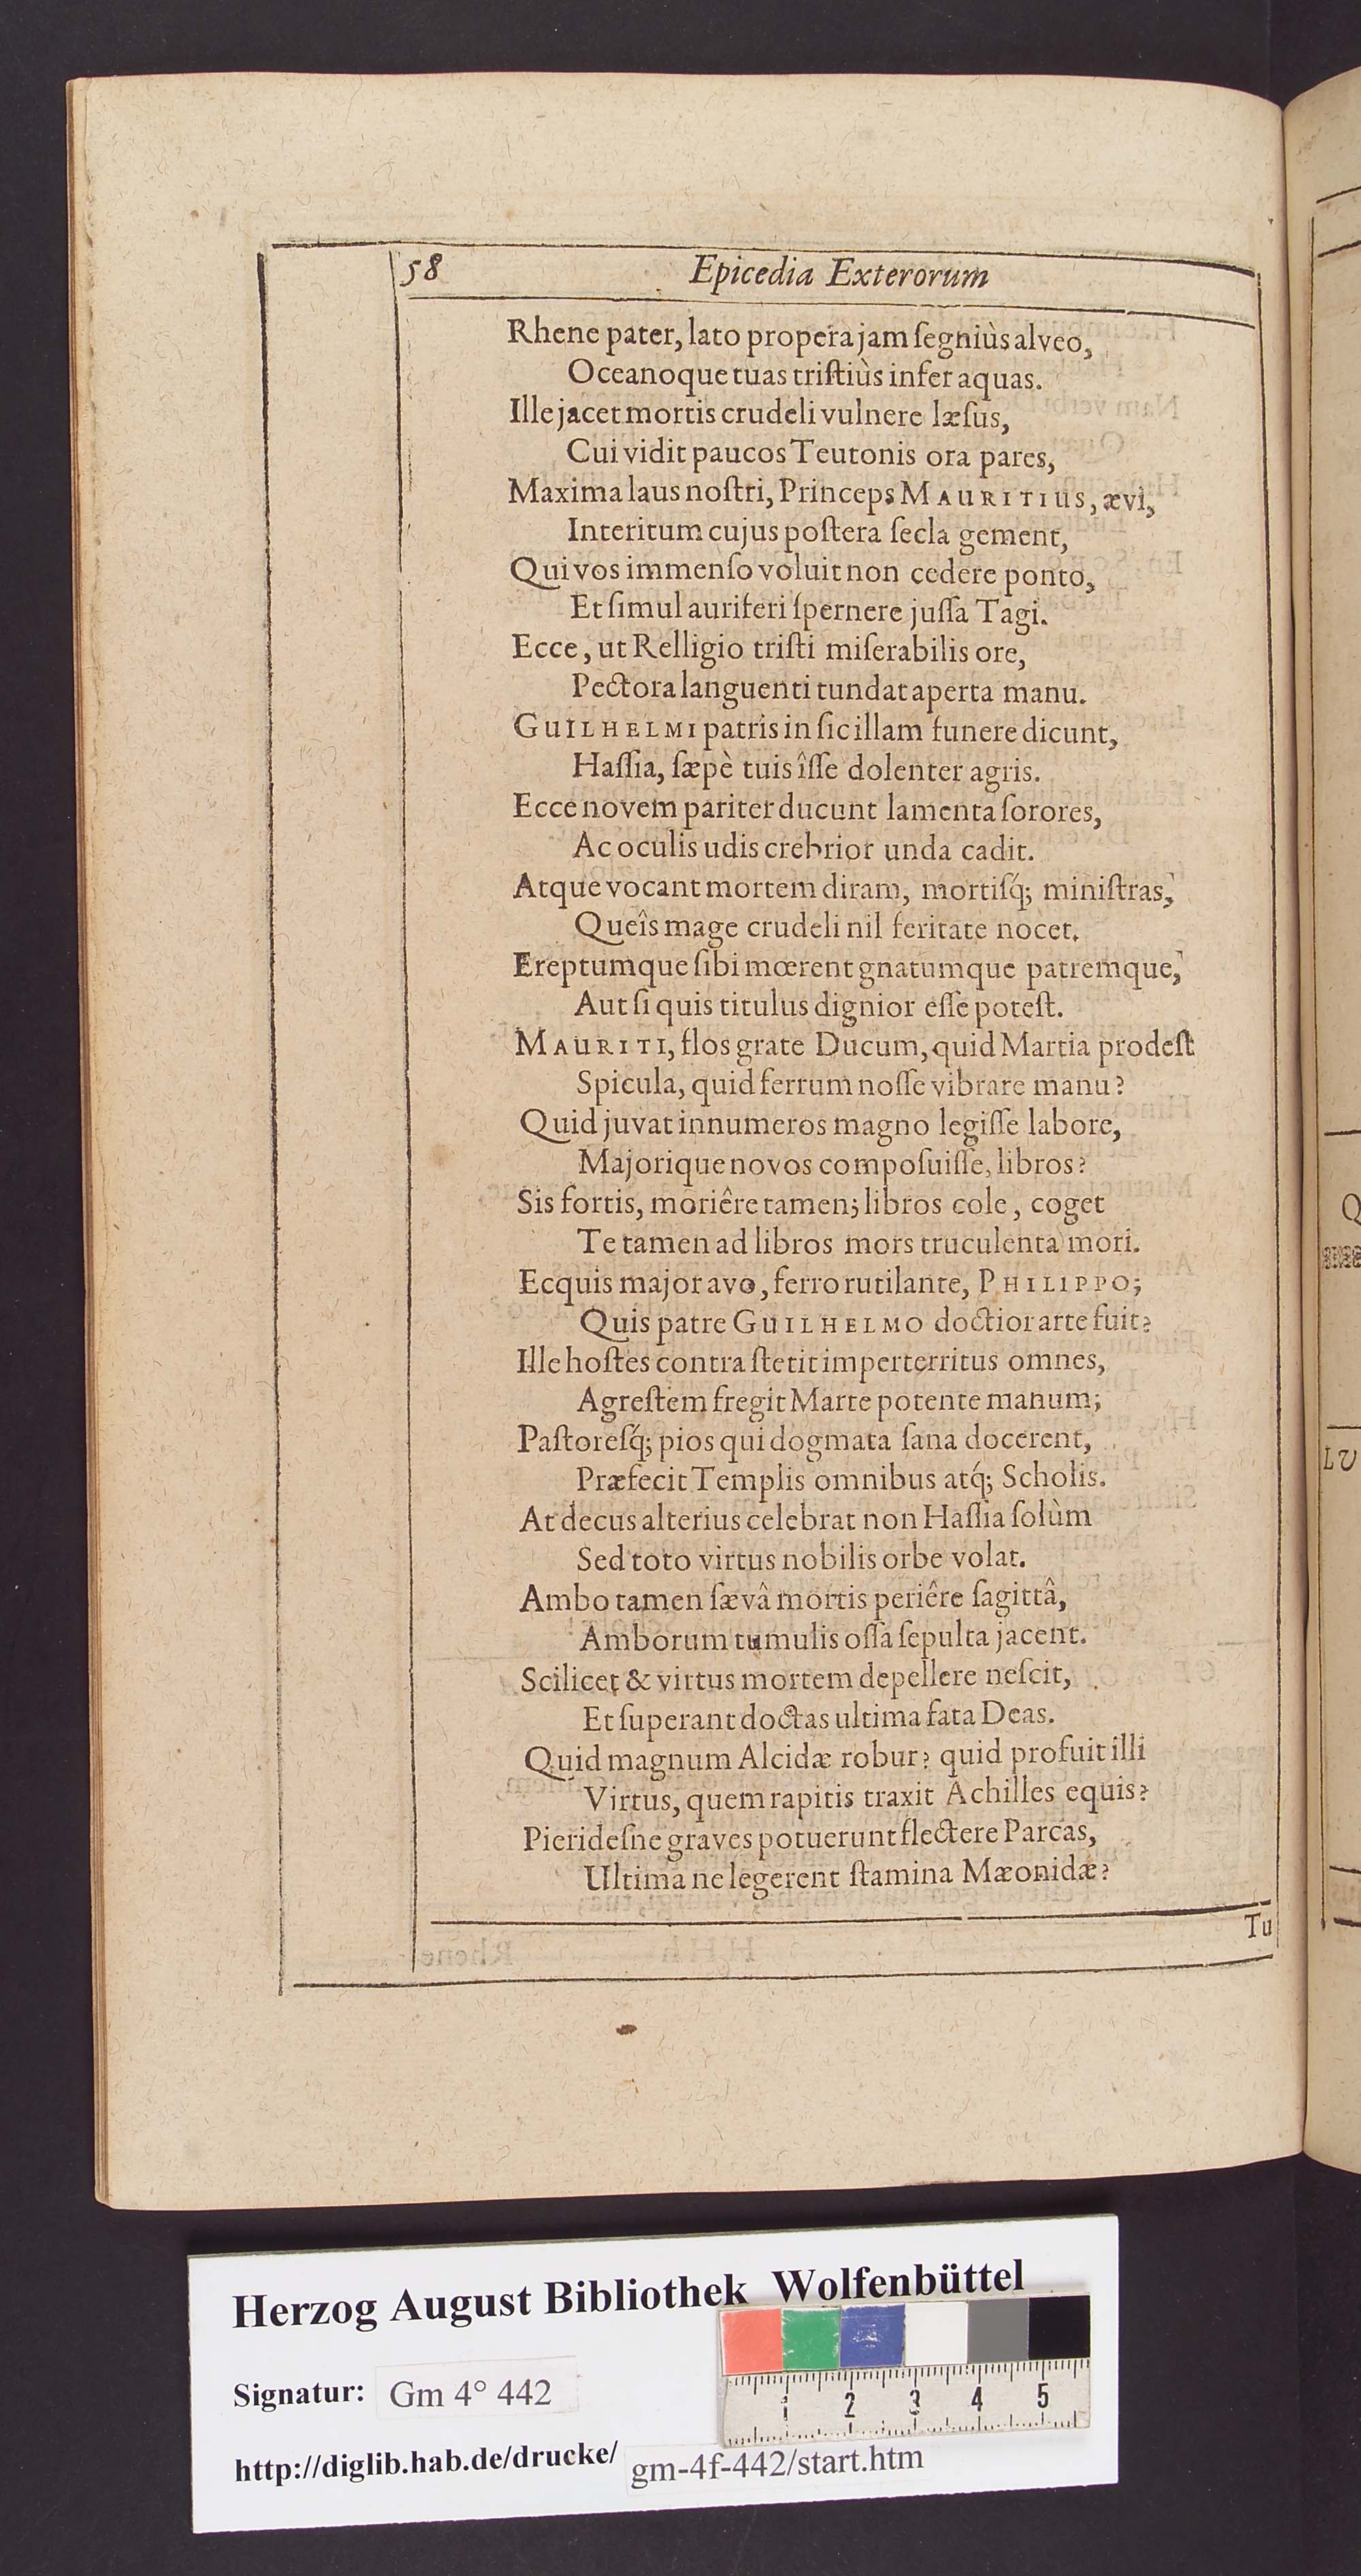 58 Epicedia Exterorum
Rhene pater, lato propera jam ſegniùs alveo,
Oceanoque tuas triſtiùs infer aquas.
Ille jacet mortis crudeli vulnere læſus,
Cui vidit paucos Teutonis ora pares,
Maxima laus noſtri, Princeps MAURITIUS, ævi,
Interitum cujus poſtera ſecla gement,
Qui vos immenſo voluit non cedere ponto,
Et ſimul auriferi ſpernere juſſa Tagi.
Ecce, ut Relligio triſti miſerabilis ore,
Pectora languenti tundat aperta manu.
GUILHELMI patris in ſic illam funere dicunt,
Haſſia, ſæpè tuis îſſe dolenter agris.
Ecce novem pariter ducunt lamenta ſorores,
Ac oculis udis crebrior unda cadit.
Atque vocant mortem diram, mortiſq́; miniſtras,
Queîs mage crudeli nil feritate nocet.
Ereptumque ſibi mœrent gnatumque patremque,
Aut ſi quis titulus dignior eſſe poteſt.
MAURITI, flos grate Ducum, quid Martia prodeſt
Spicula, quid ferrum noſſe vibrare manu?
Quid juvat innumeros magno legiſſe labore,
Majorique novos compoſuiſſe, libros?
Sis fortis, moriêre tamen; libros cole, coget
Te tamen ad libros mors truculenta mori.
Ecquis major avo, ferro rutilante, PHILIPPO;
Quis patre GUILHELMO doctior arte fuit?
Ille hoſtes contra ſtetit imperterritus omnes,
Agreſtem fregit Marte potente manum;
Paſtoreſq́; pios qui dogmata ſana docerent,
Præfecit Templis omnibus atq́; Scholis.
At decus alterius celebrat non Haſſia ſolùm
Sed toto virtus nobilis orbe volat.
Ambo tamen ſævâ mortis periêre ſagittâ,
Amborum tumulis oſſa ſepulta jacent.
Scilicet & virtus mortem depellere neſcit,
Et ſuperant doctas ultima fata Deas.
Quid magnum Alcidæ robur? quid profuit illi
Virtus, quem rapitis traxit Achilles equis?
Pierideſne graves potuerunt flectere Parcas,
Ultima ne legerent ſtamina Mæonidæ?
Tu
Q
LV
Herzog August Bibliothek Wolfenbüttel
Signatur: Gm 4° 442
1 2 3 4 5
http://diglib.hab.de/drucke/ gm-4f-442/start.htm